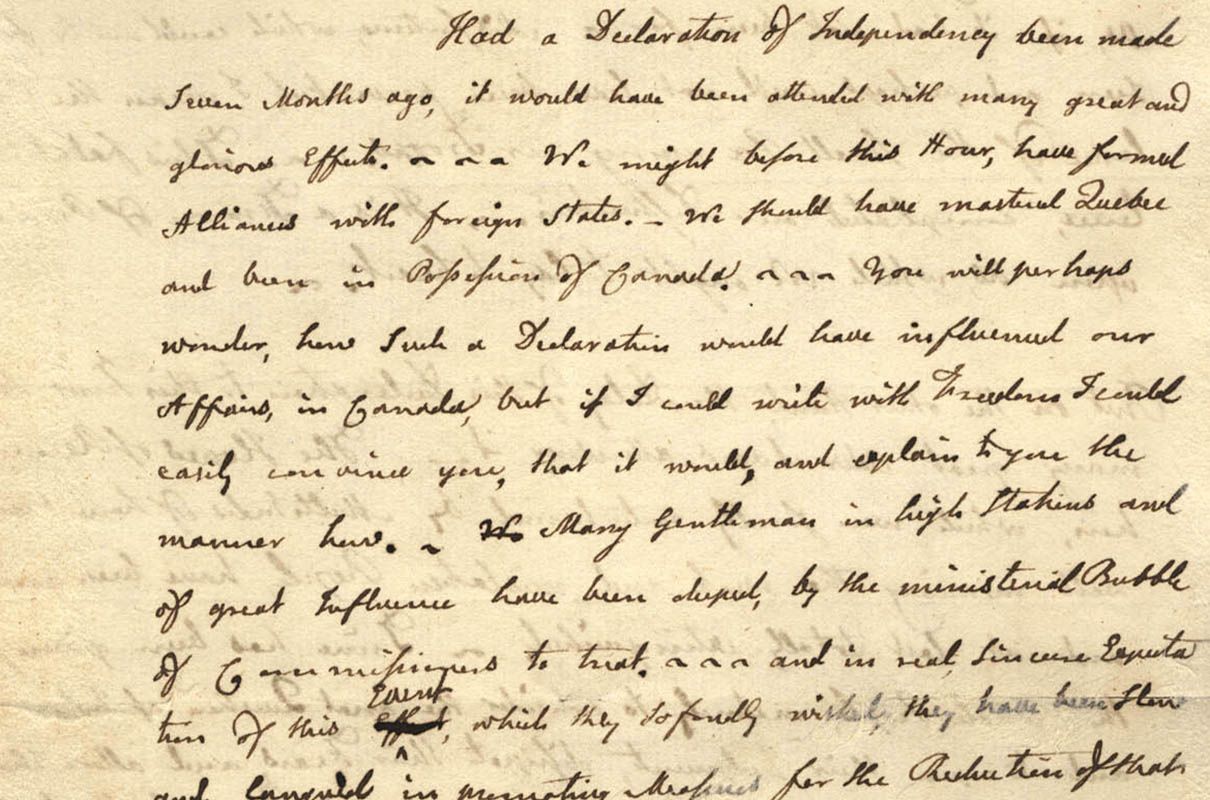 Had a Declaration of Independency been made
Seven Months ago, it would have been attended with many great and
glorious Effects. ~ ~ ~ We might before this Hour, have formed
Alliances with foreign States. – We should have mastered Quebec
and been in Possession of Canada. ~ ~ ~ You will perhaps
wonder, how Such a Declaration would have influenced our
Affairs, in Canada, but if I could write with Freedom I could
easily convince you, that it would, and explain to you the
manner how. ~ We Many Gentlemen in high Stations and
of great Influence have been duped, by the ministerial Bubble
of Commissioners to treat. ~ ~ ~ and in real, Sincere Expecta
tion of this Effect Event, which they So fondly wished, they have been Slow
and Languid, in promoting Measures for the Reduction of that